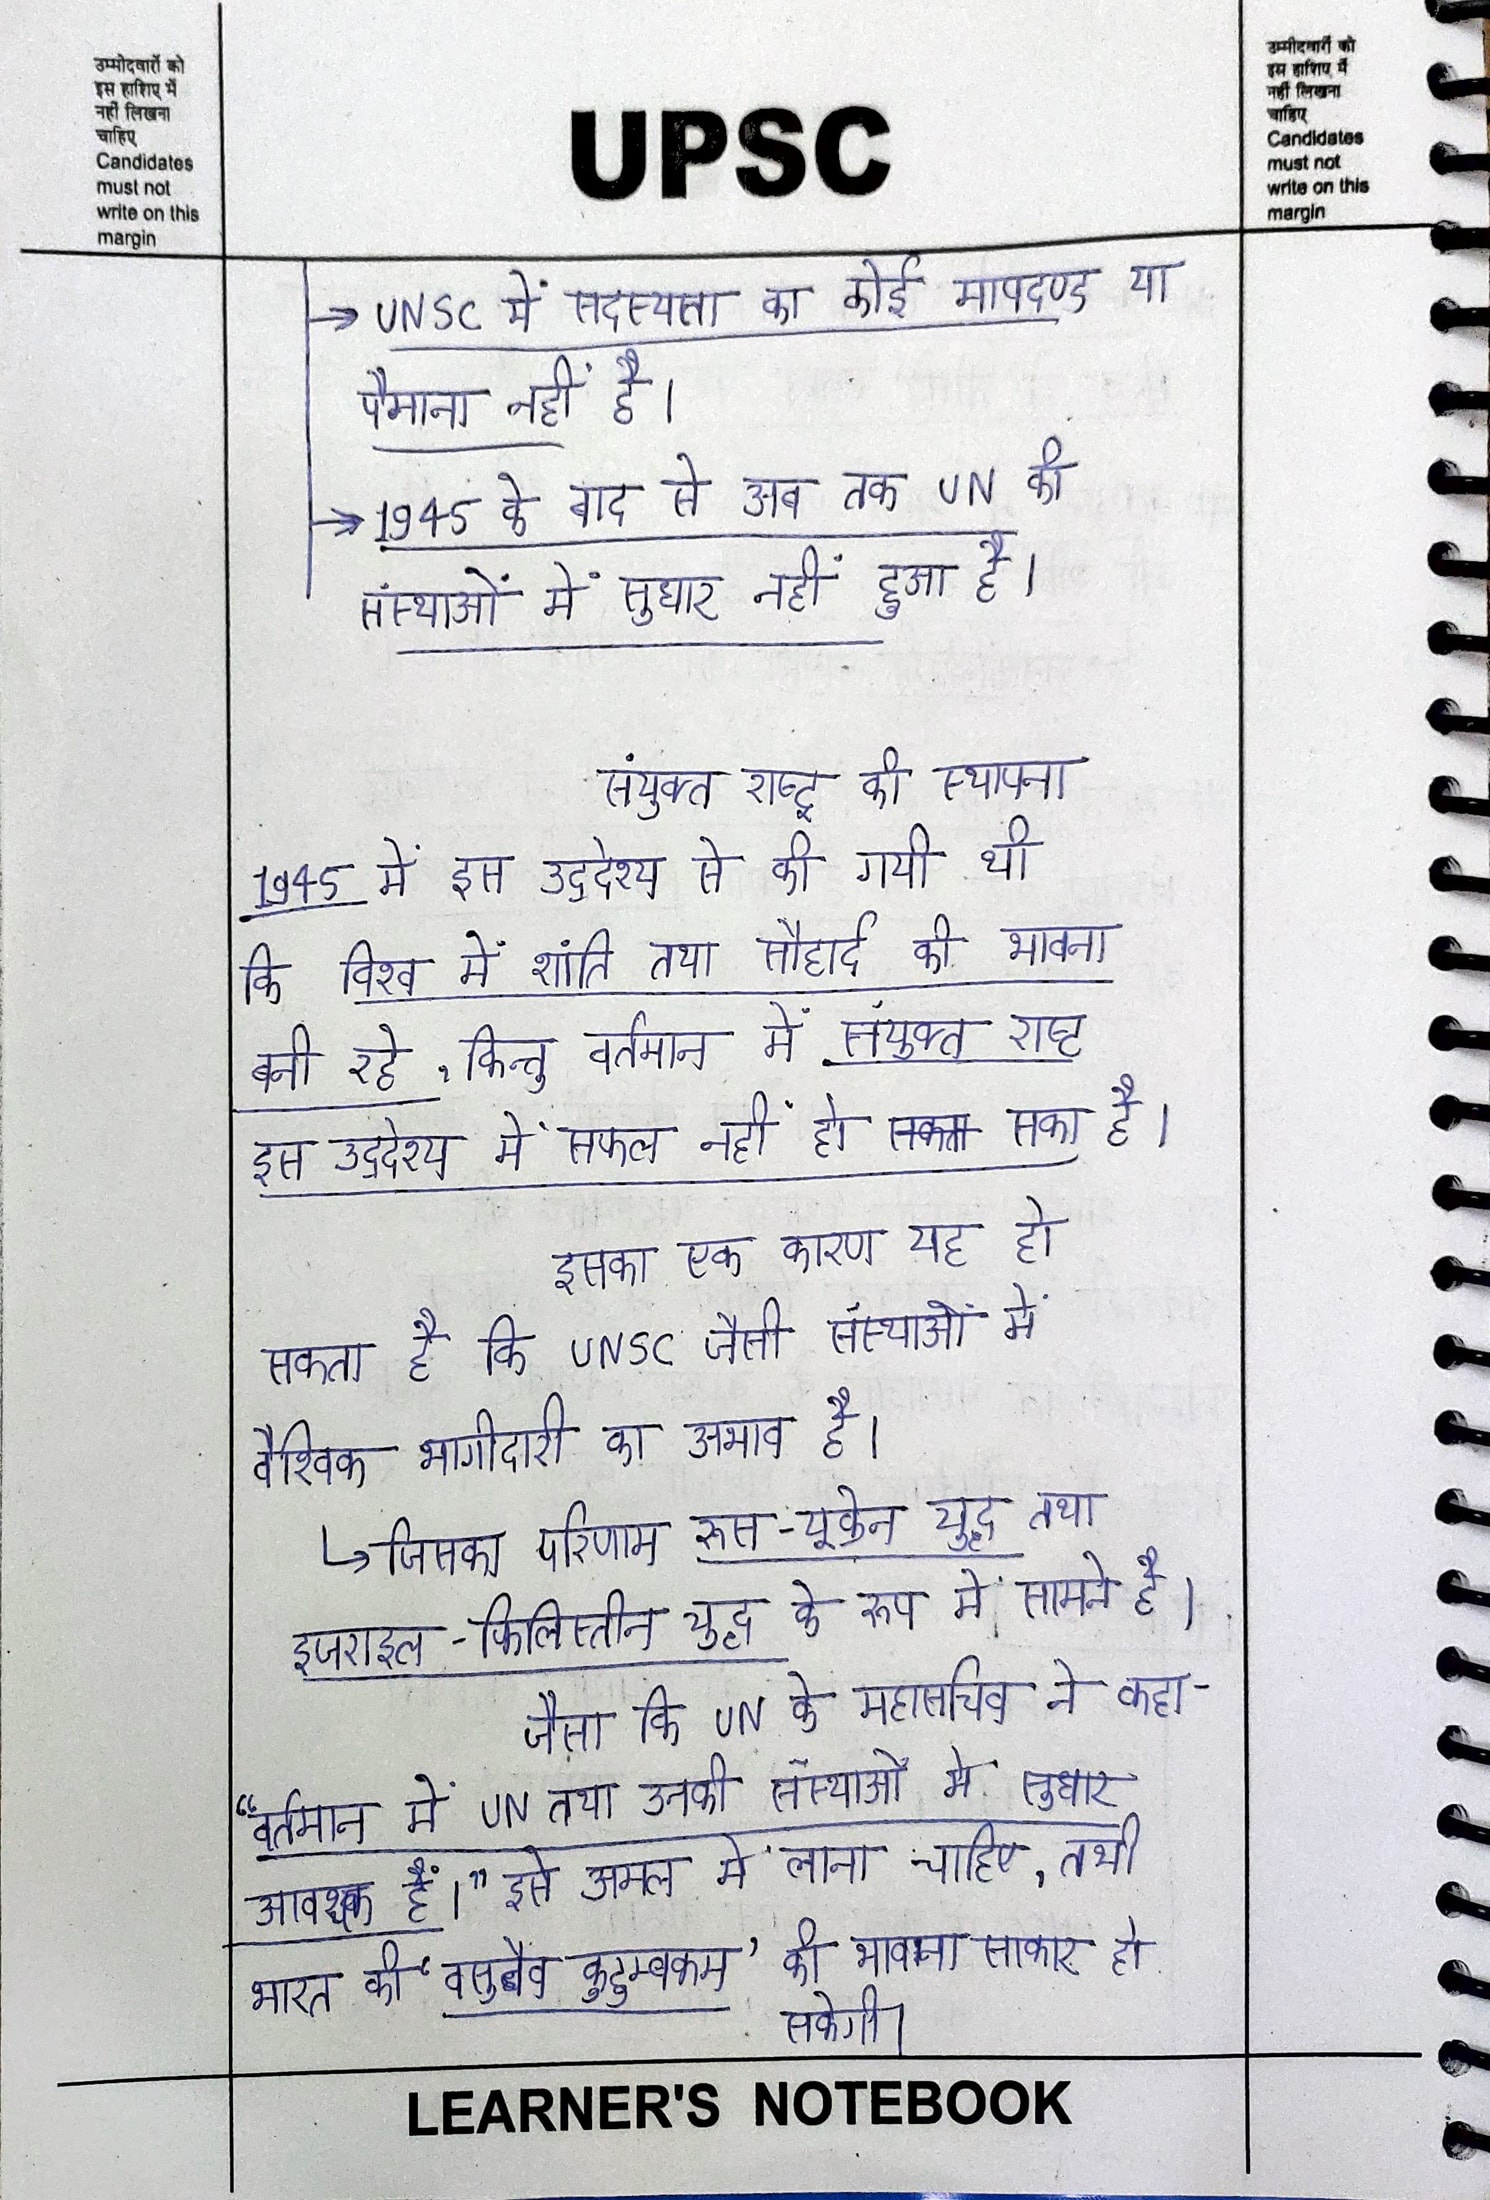 उम्मीदवारों को
इस हाशिए में
नहीं लिखना
चाहिए
Candidates
must not
write on this
margin
UPSC
उम्मीदवारों को
इस हाशिए में
नहीं लिखना
चाहिए
Candidates
must not
write on this
margin
→ UNSC में सदस्यता का कोई मापदण्ड या
पैमाना नहीं है।
→ 1945 के बाद से अब तक UN की
संस्थाओं में सुधार नहीं हुआ है।
संयुक्त राष्ट्र की स्थापना
1945 में इस उद्देश्य से की गयी थी
कि विश्व में शांति तथा सौहार्द की भावना
बनी रहे, किन्तु वर्तमान में संयुक्त राष्ट
इस उद्देश्य में सफल नहीं हो सकता सका है।
इसका एक कारण यह हो
सकता है कि UNSC जैसी संस्थाओं में
वैश्विक भागीदारी का अभाव है।
↳ जिसका परिणाम रूस-यूक्रेन युद्ध तथा
इजराइल-फिलिस्तीन युद्ध के रूप में सामने है।
जैसा कि UN के महासचिव ने कहा-
“वर्तमान में UN तथा उनकी संस्थाओं में सुधार
आवश्यक हैं।” इसे अमल में लाना चाहिए, तभी
भारत की ‘वसुधैव कुटुम्बकम’ की भावना साकार हो
सकेगी।
LEARNER'S NOTEBOOK